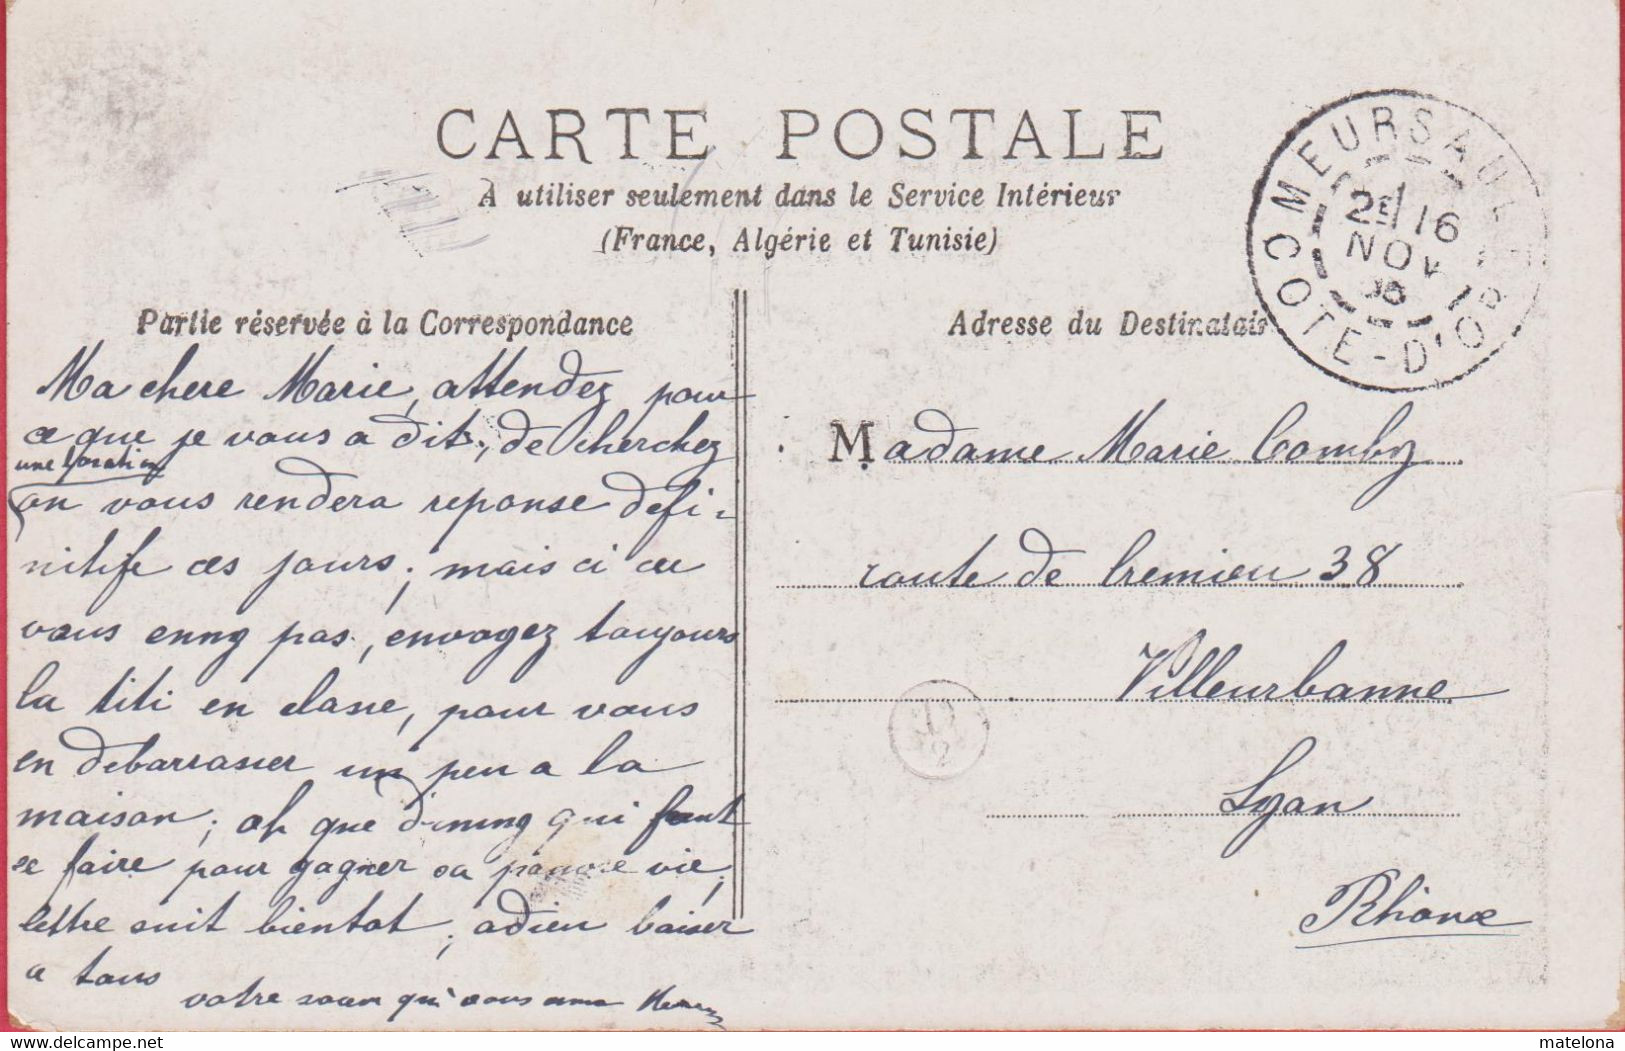 CARTE POSTALE
A utiliser seulement dans le Service Intérieur
(France, Algérie et Tunisie)
MEURSAULT
2E 16
NOV
COTE-D'OR
Partie réservée à la Correspondance
Ma chere Marie, attendez pour
ce que je vous a dit, de cherchez
une location
on vous rendera reponse defi-
nitife ces jours; mais ci ca
vous ennuy pas, envoyez toujours
la titi en classe, pour vous
en debarrasser un peu a la
maison; ah que qui faut
se faire pour gagner sa pauvre vie,
lettre suit bientot, adieu baiser
a tous
votre soeur qui vous aime
Adresse du Destinatair
Madame Marie Comby
route de Cremieu 38
Villeurbanne
Lyon
Rhône
www.delcampe.net
matelona